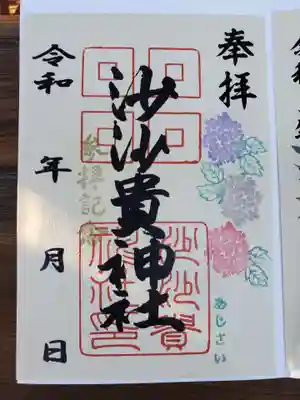 奉拝
あじさい
沙沙貴神社
参拝記念
沙沙貴
神社之印
令和 年 月 日